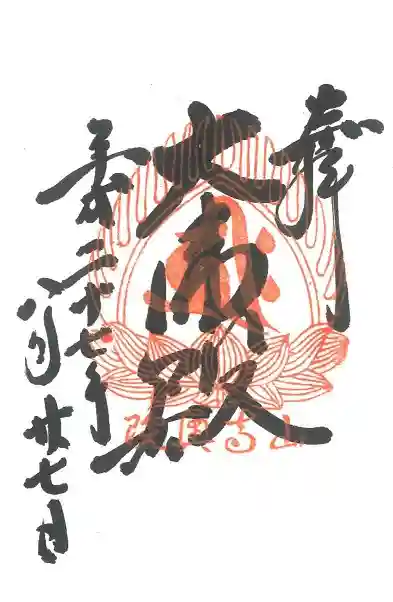 奉拝
大師殿
平成二十七年
八月廿七日